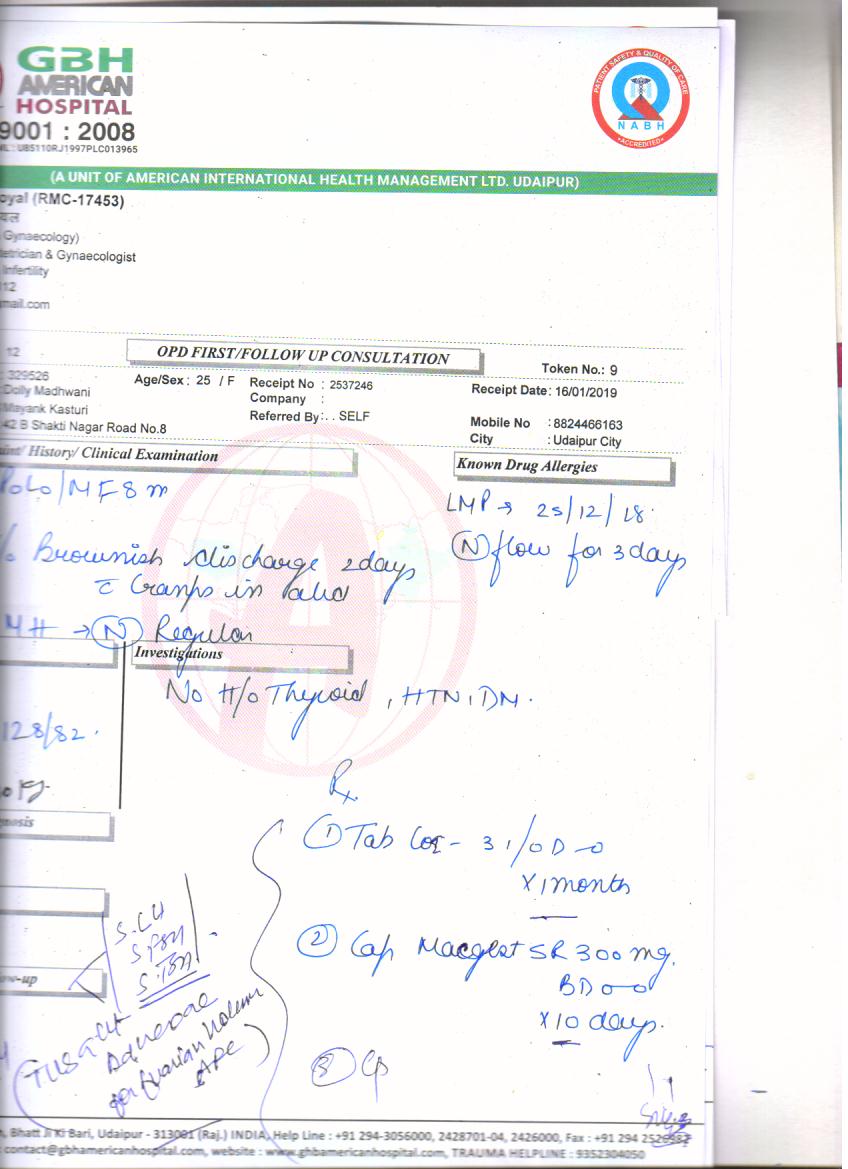 GBH
AMERICAN
HOSPITAL
9001 : 2008
U85110RJ1997PLC013965
PATIENT SAFETY & QUALITY OF CARE
NABH
ACCREDITED
(A UNIT OF AMERICAN INTERNATIONAL HEALTH MANAGEMENT LTD. UDAIPUR)
oyal (RMC-17453)
यल
Gynaecology)
tetrician & Gynaecologist
Infertility
12
mail.com
OPD FIRST/FOLLOW UP CONSULTATION
Token No.: 9
12
: 329526
Age/Sex : 25 / F
Receipt No : 2537246
Receipt Date: 16/01/2019
Dolly Madhwani
Company :
Mayank Kasturi
Referred By: . . SELF
Mobile No : 8824466163
42 B Shakti Nagar Road No.8
City : Udaipur City
aint/ History/ Clinical Examination
Known Drug Allergies
P0L0/MF 8m
LMP → 25/12/18.
Brownish discharge 2days
(N) flow for 3 days
c̄ Cramps in abd
MH → (N) Regular
Investigations
No H/o Thyroid, HTN, DM.
128/82.
Rx
nosis
① Tab 3 1/OD
x 1 month
② Cap Macgest SR 300 mg.
BD
x 10 days.
S. LH
S FSH
S. TSH
ow-up
for Ovarian Volume
AFC)
③ Cp
, Bhatt Ji Ki Bari, Udaipur - 313001 (Raj.) INDIA, Help Line : +91 294-3056000, 2428701-04, 2426000, Fax : +91 294 2526982
: contact@gbhamericanhospital.com, website : www.ghbamericanhospital.com, TRAUMA HELPLINE : 9352304050